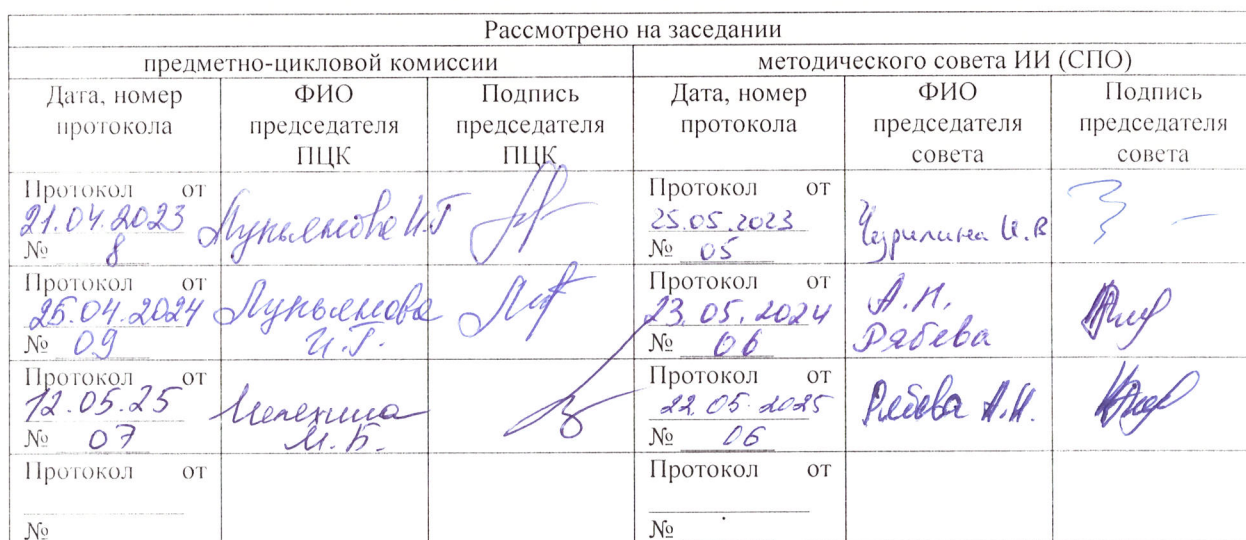 Рассмотрено на заседании
предметно-цикловой комиссии
методического совета ИИ (СПО)
Дата, номер протокола
ФИО председателя ПЦК
Подпись председателя ПЦК
Дата, номер протокола
ФИО председателя совета
Подпись председателя совета
Протокол от
21.04.2023
№ 8
Лукьянова И.Г
Протокол от
25.05.2023
№ 05
И.В
Протокол от
25.04.2024
№ 09
Лукьянова
И.Г.
Протокол от
23.05.2024
№ 06
А.Н.
Рябева
Протокол от
12.05.25
№ 07
М.Б.
Протокол от
22.05.2025
№ 06
Рябева А.Н.
Протокол от
№
Протокол от
№